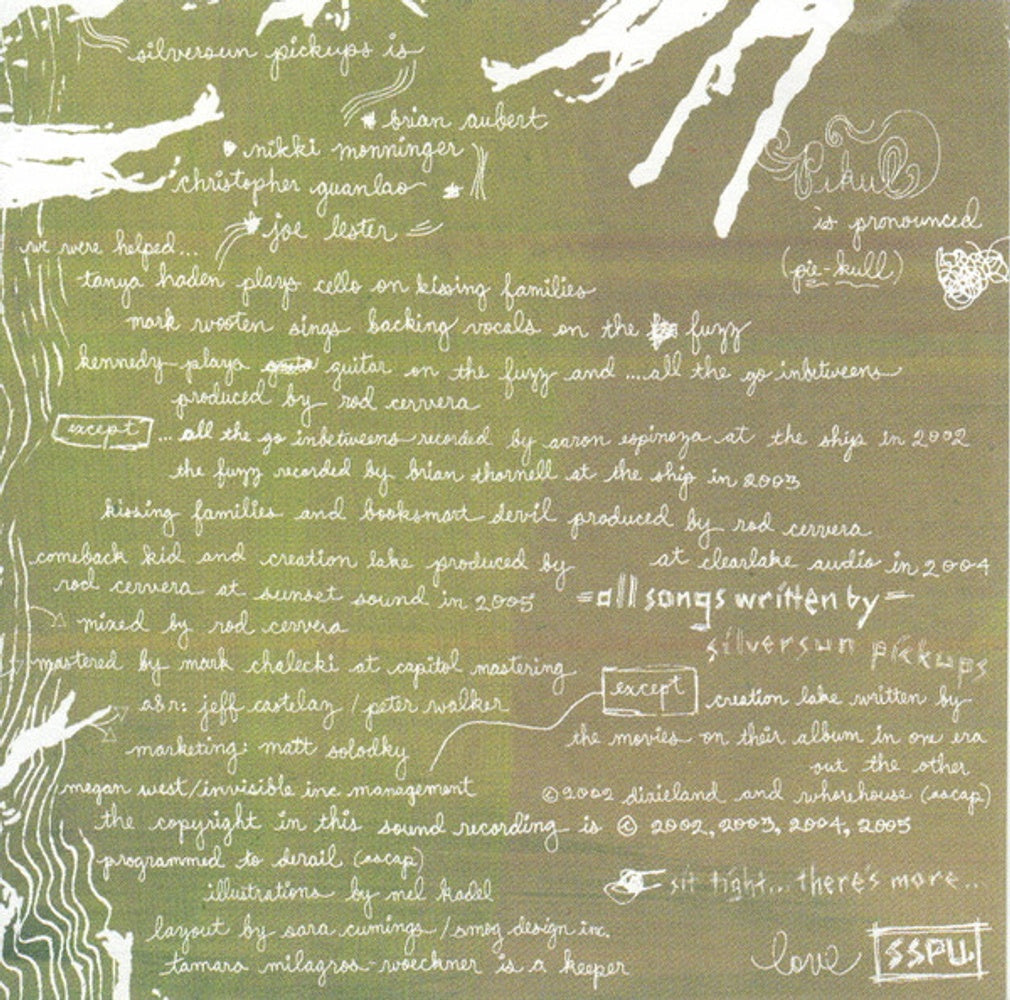 silversun pickups is
brian aubert
nikki monninger
christopher guanlao
joe lester
Pikul
is pronounced
(pie-kull)
we were helped...
tanya haden plays cello on kissing families
mark wooten sings backing vocals on the fuzz
kennedy plays guitar on the fuzz and ....all the go inbetweens
produced by rod cervera
except ... all the go inbetweens recorded by aaron espinoza at the ship in 2002
the fuzz recorded by brian thornell at the ship in 2003
kissing families and booksmart devil produced by rod cervera
at clearlake audio in 2004
comeback kid and creation lake produced by
rod cervera at sunset sound in 2005
mixed by rod cervera
mastered by mark chalecki at capitol mastering
a&r: jeff castelaz / peter walker
marketing: matt solodky
megan west/invisible inc management
=all songs written by=
silversun pickups
except creation lake written by
the movies on their album in one era
out the other
©2002 dixieland and whorehouse (ascap)
the copyright in this sound recording is © 2002, 2003, 2004, 2005
programmed to derail (ascap)
illustrations by mel kadel
sit tight... there's more...
layout by sara cumings / smog design inc.
tamara milagros-woeckner is a keeper
love SSPU.